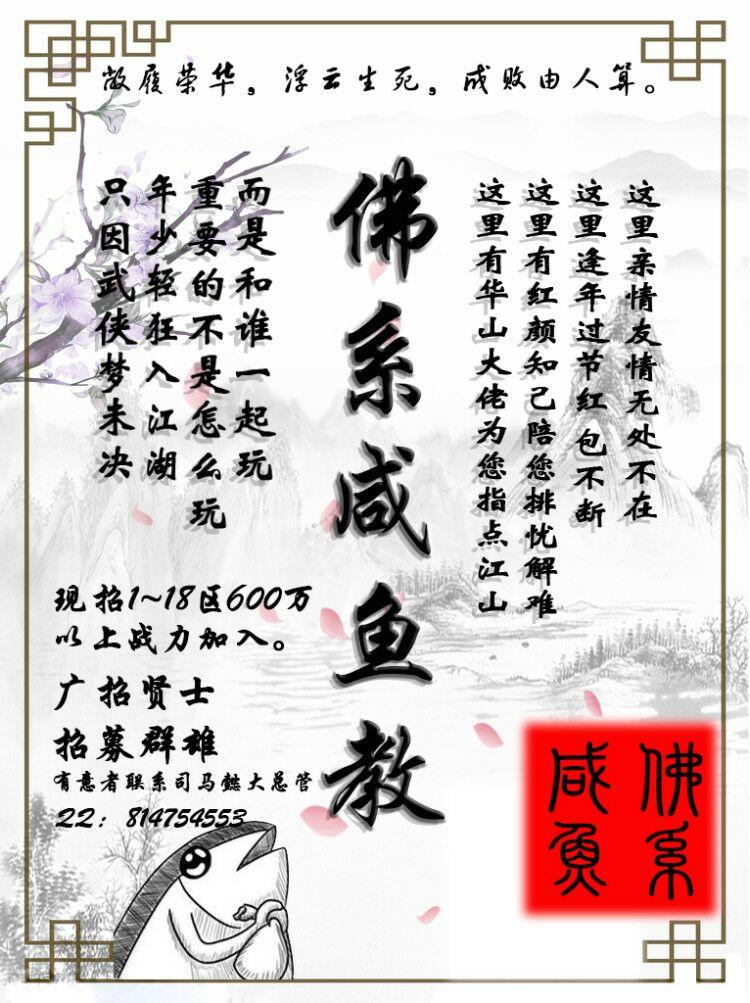 敝履荣华，浮云生死，成败由人算。
这里亲情友情无处不在
这里逢年过节红包不断
这里有红颜知己陪您排忧解难
这里有华山大佬为您指点江山
佛系咸鱼教
而是和谁一起玩
重要的不是怎么玩
年少轻狂入江湖
只因武侠梦未决
现招1~18区600万
以上战力加入。
广招贤士
招募群雄
有意者联系司马懿大总管
QQ：814754553
佛系
咸鱼